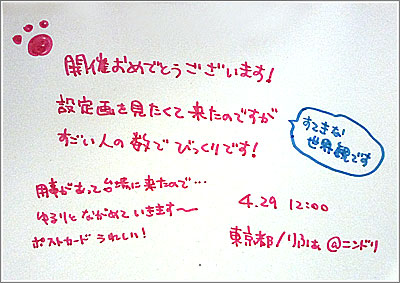 開催おめでとうございます!
設定画を見たくて来たのですが
すごい人の数でびっくりです!
すてきな
世界観です
用事があって台場に来たので…
ゆるりとながめていきます〜
ポストカードうれしい!
4.29 12:00
東京都/りふぁ @ニンドリ